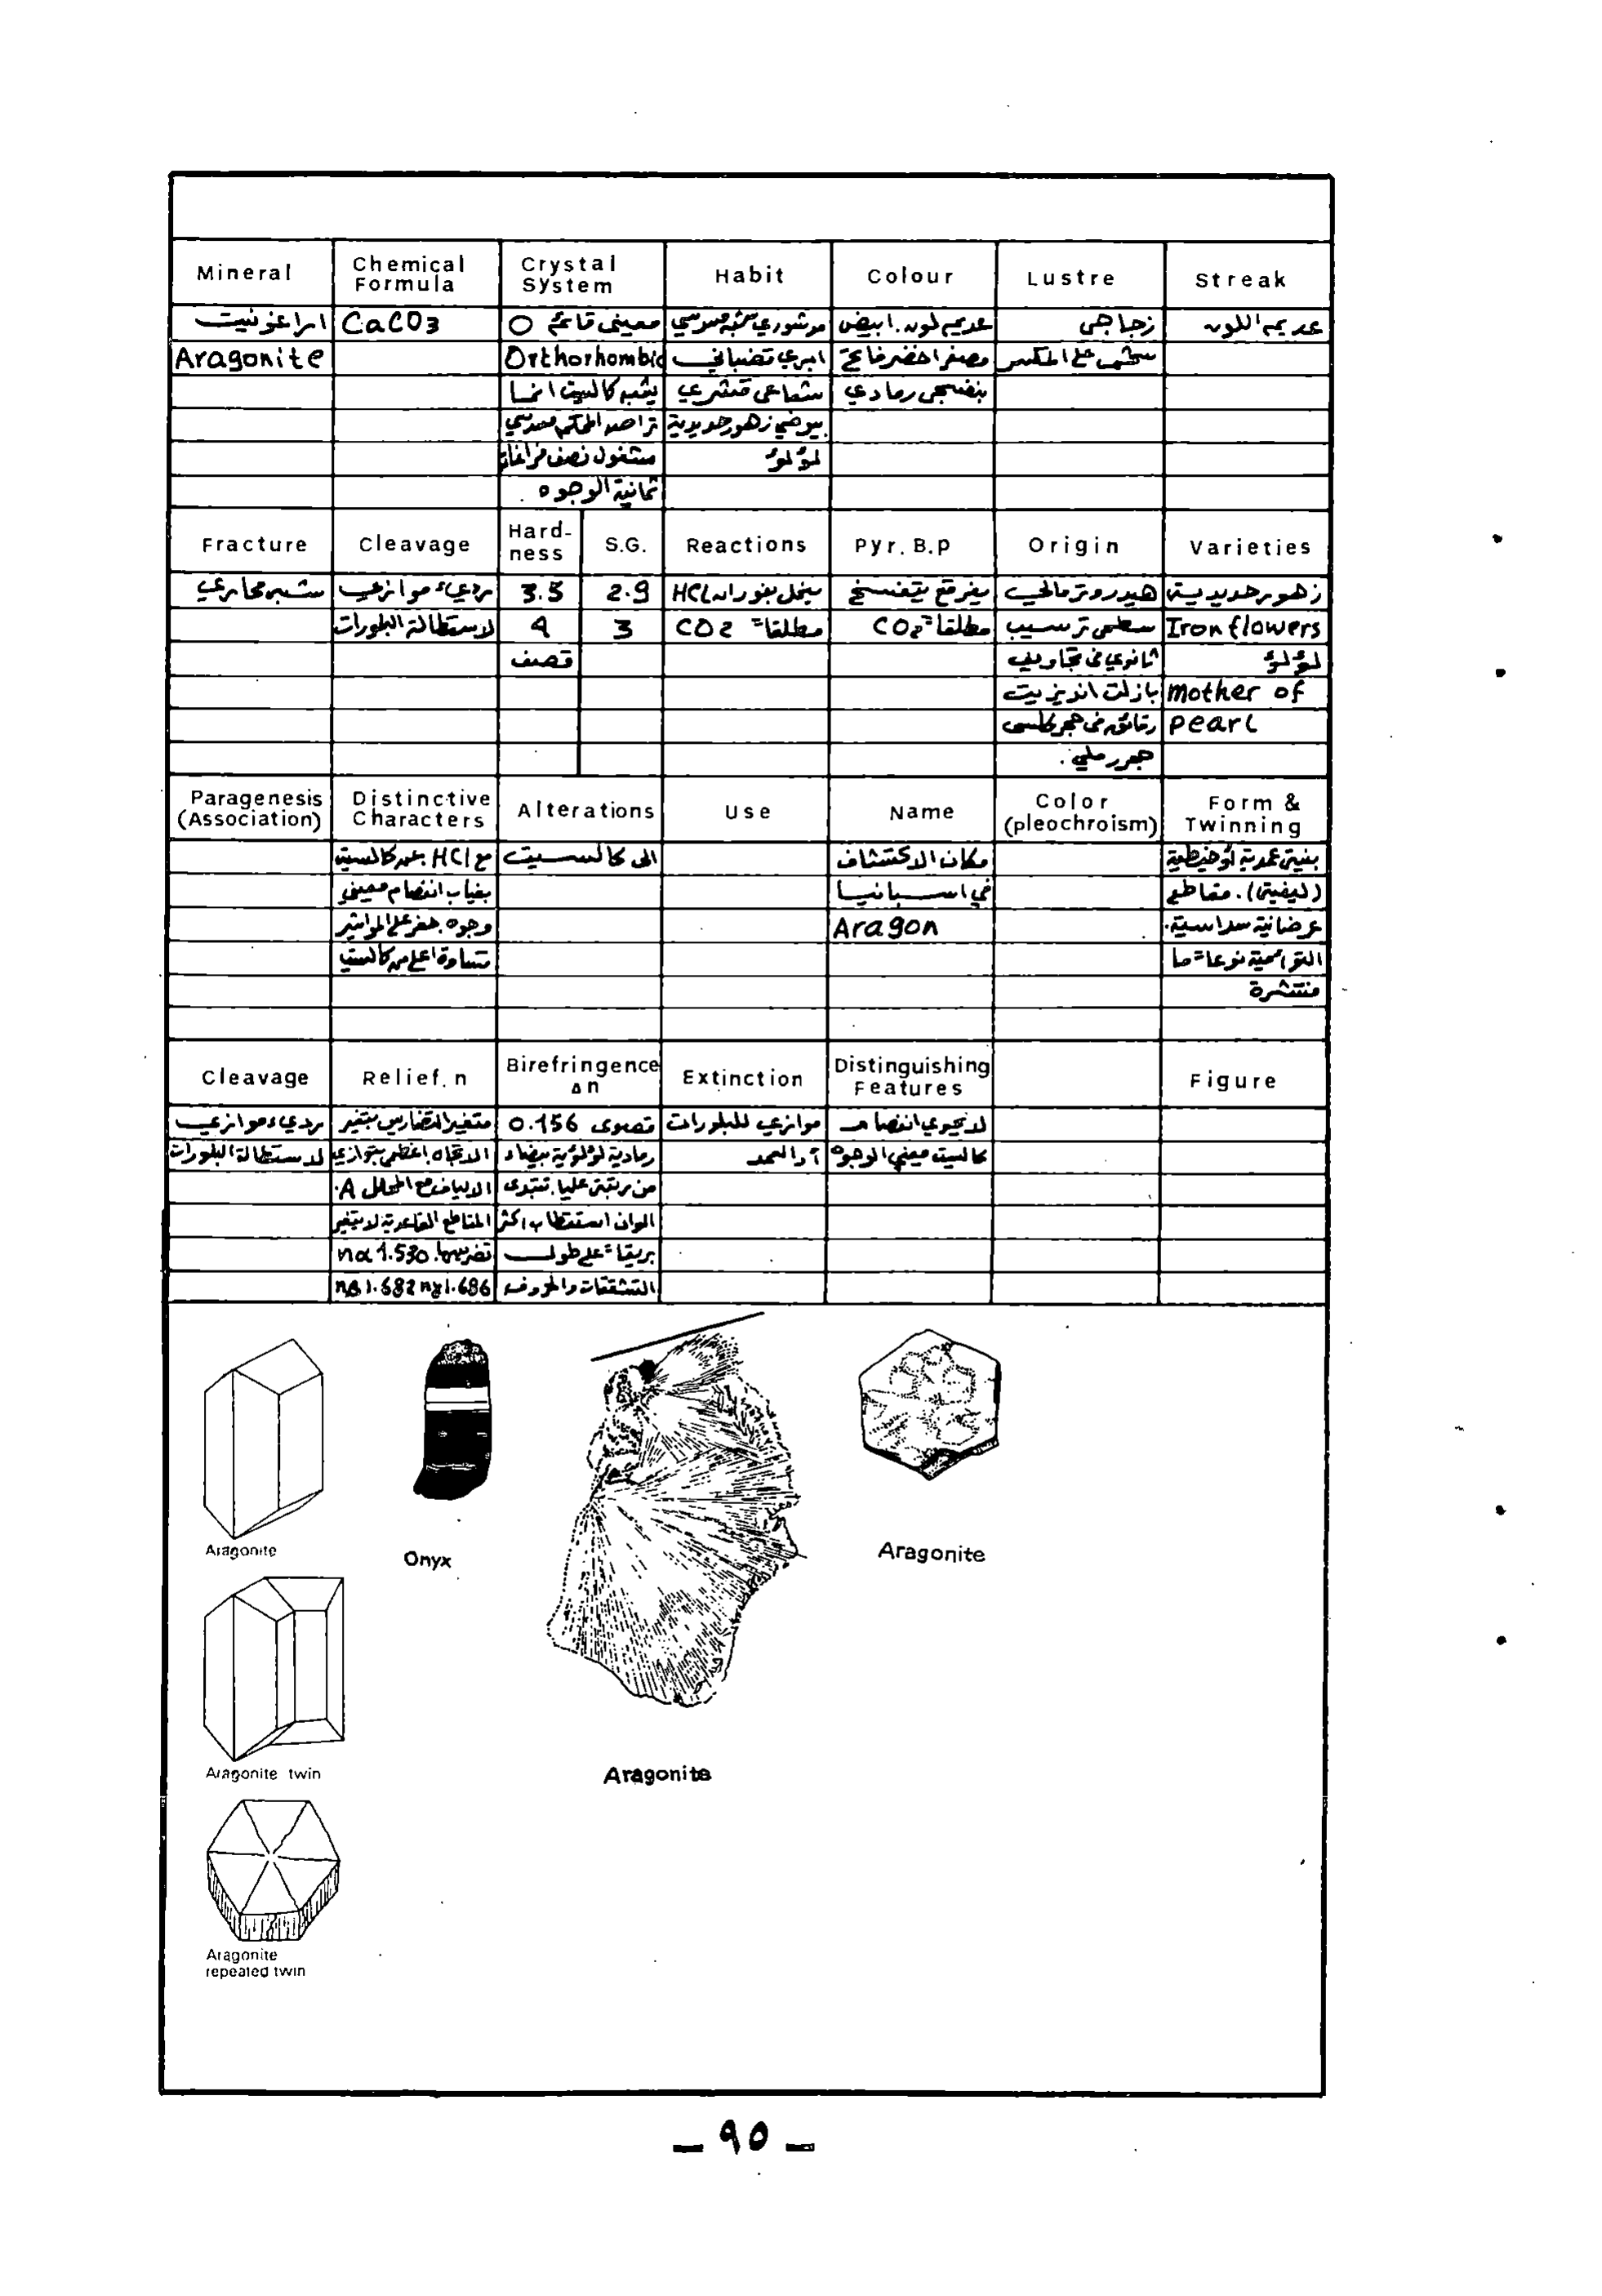 Mineral
Chemical Formula
Crystal System
Habit
Colour
Lustre
Streak
اراغونيت
CaCO3
معيني قائم O
موشوري شبه سدسي
عديم لون. ابيض
زجاجي
عديم اللون
Aragonite
Orthorhombic
ابري قضباني
مصفر اخضر فاتح
شحمي على المكسر
يشبه كالسيت انما
شعاعي قشري
بنفسجي رمادي
تراص المحكم سدسي
بيوضي زهور حديدية
مشغول نصف فراغات
لؤلؤ
ثمانية الوجوه .
Fracture
Cleavage
Hard-ness
S.G.
Reactions
Pyr. B.p
Origin
Varieties
شبه محاري
رديء موازي
3.5
2.9
ينحل بفوران HCl
يفرقع يتفسخ
هيدروترمالي
زهور حديدية
لاستطالة البلورات
4
3
مطلقا CO2
مطلقا CO2
سطحي ترسيب
Iron flowers
قصف
ثانوي في تجاويف
لؤلؤ
بازلت انديزيت
mother of
رقائق في حجر كلسي
pearl
حجر رملي .
Paragenesis (Association)
Distinctive Characters
Alterations
Use
Name
Color (pleochroism)
Form & Twinning
مع HCl
الى كالسيت
مكان الاكتشاف
بنيته عمدية او خيطية
بغياب انفصام معيني
في اسبانيا
(ليفية). مقاطع
Aragon
عرضانية سداسية.
قساوة اعلى من كالسيت
التوأمية نوعا ما
منتشرة
Cleavage
Relief. n
Birefringence Δn
Extinction
Distinguishing Features
Figure
رديء موازي
متغير التضاريس بتغير
قصوى 0.156
موازي للبلورات
لا يحوي انفصام
لاستطالة البلورات
الاتجاه اعظمي بتوازي
رمادية لؤلؤية بيضاء
كالسيت معيني الوجوه
من رتبة عليا. تتبدى
الوان استقطاب اكثر
المقاطع القاعدية لا يتغير
بريقا على طول
تضريسها. nα 1.530
التشققات والحروف
nβ 1.682 nγ 1.686
Aragonite
Onyx
Aragonite
Aragonite twin
Aragonite
Aragonite
repeated twin
– ٩٥ –